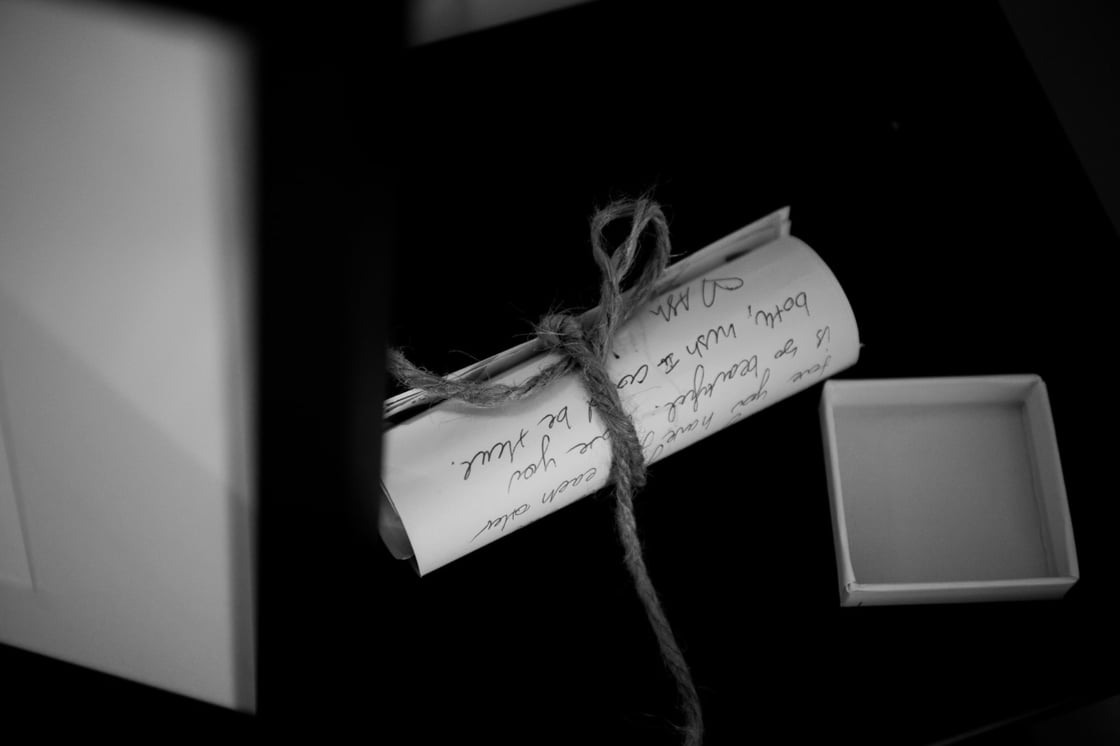 love you have each other
is so beautiful. love you
both, wish I be there.
♡ Ash